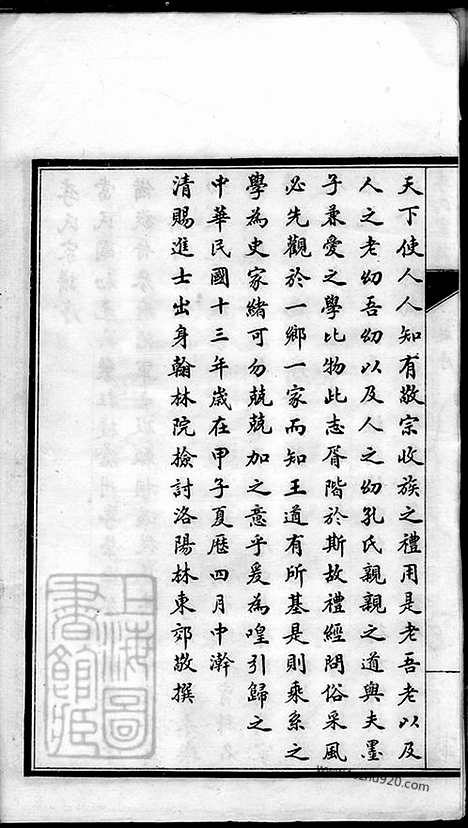 天下使人人知有敬宗收族之禮用是老吾老以及
人之老幼吾幼以及人之幼孔氏親親之道與夫墨
子兼愛之學比物此志胥階於斯故禮經問俗采風
必先觀於一鄉一家而知王道有所基是則乘系之
學為史家緒可勿兢兢加之意乎爰為喤引歸之
中華民國十三年歲在甲子夏歷四月中澣
清賜進士出身翰林院檢討洛陽林東郊敬撰
上海圖
書館藏